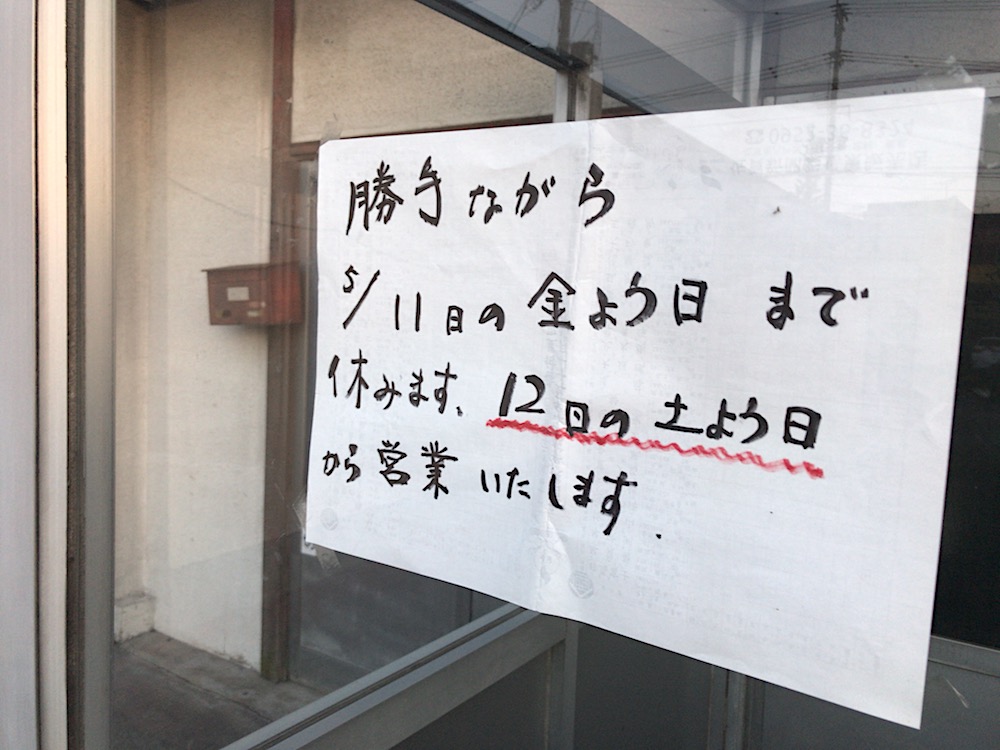 勝手ながら
5/11日の金よう日 まで
休みます、12日の土よう日
から営業いたします.